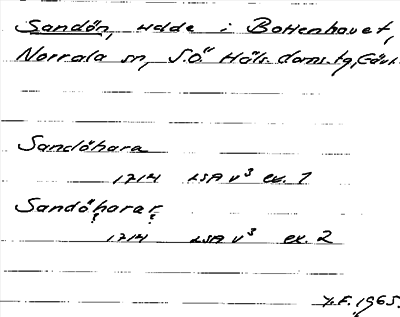 Sandön, udde i Bottenhavet,
Norrala sn, S.Ö Häls. doms.tg, Gävl.
Sandöhara
1714 LSA V³ ex. 1
Sandöharar
1714 LSA V³ ex. 2
F. 1965.